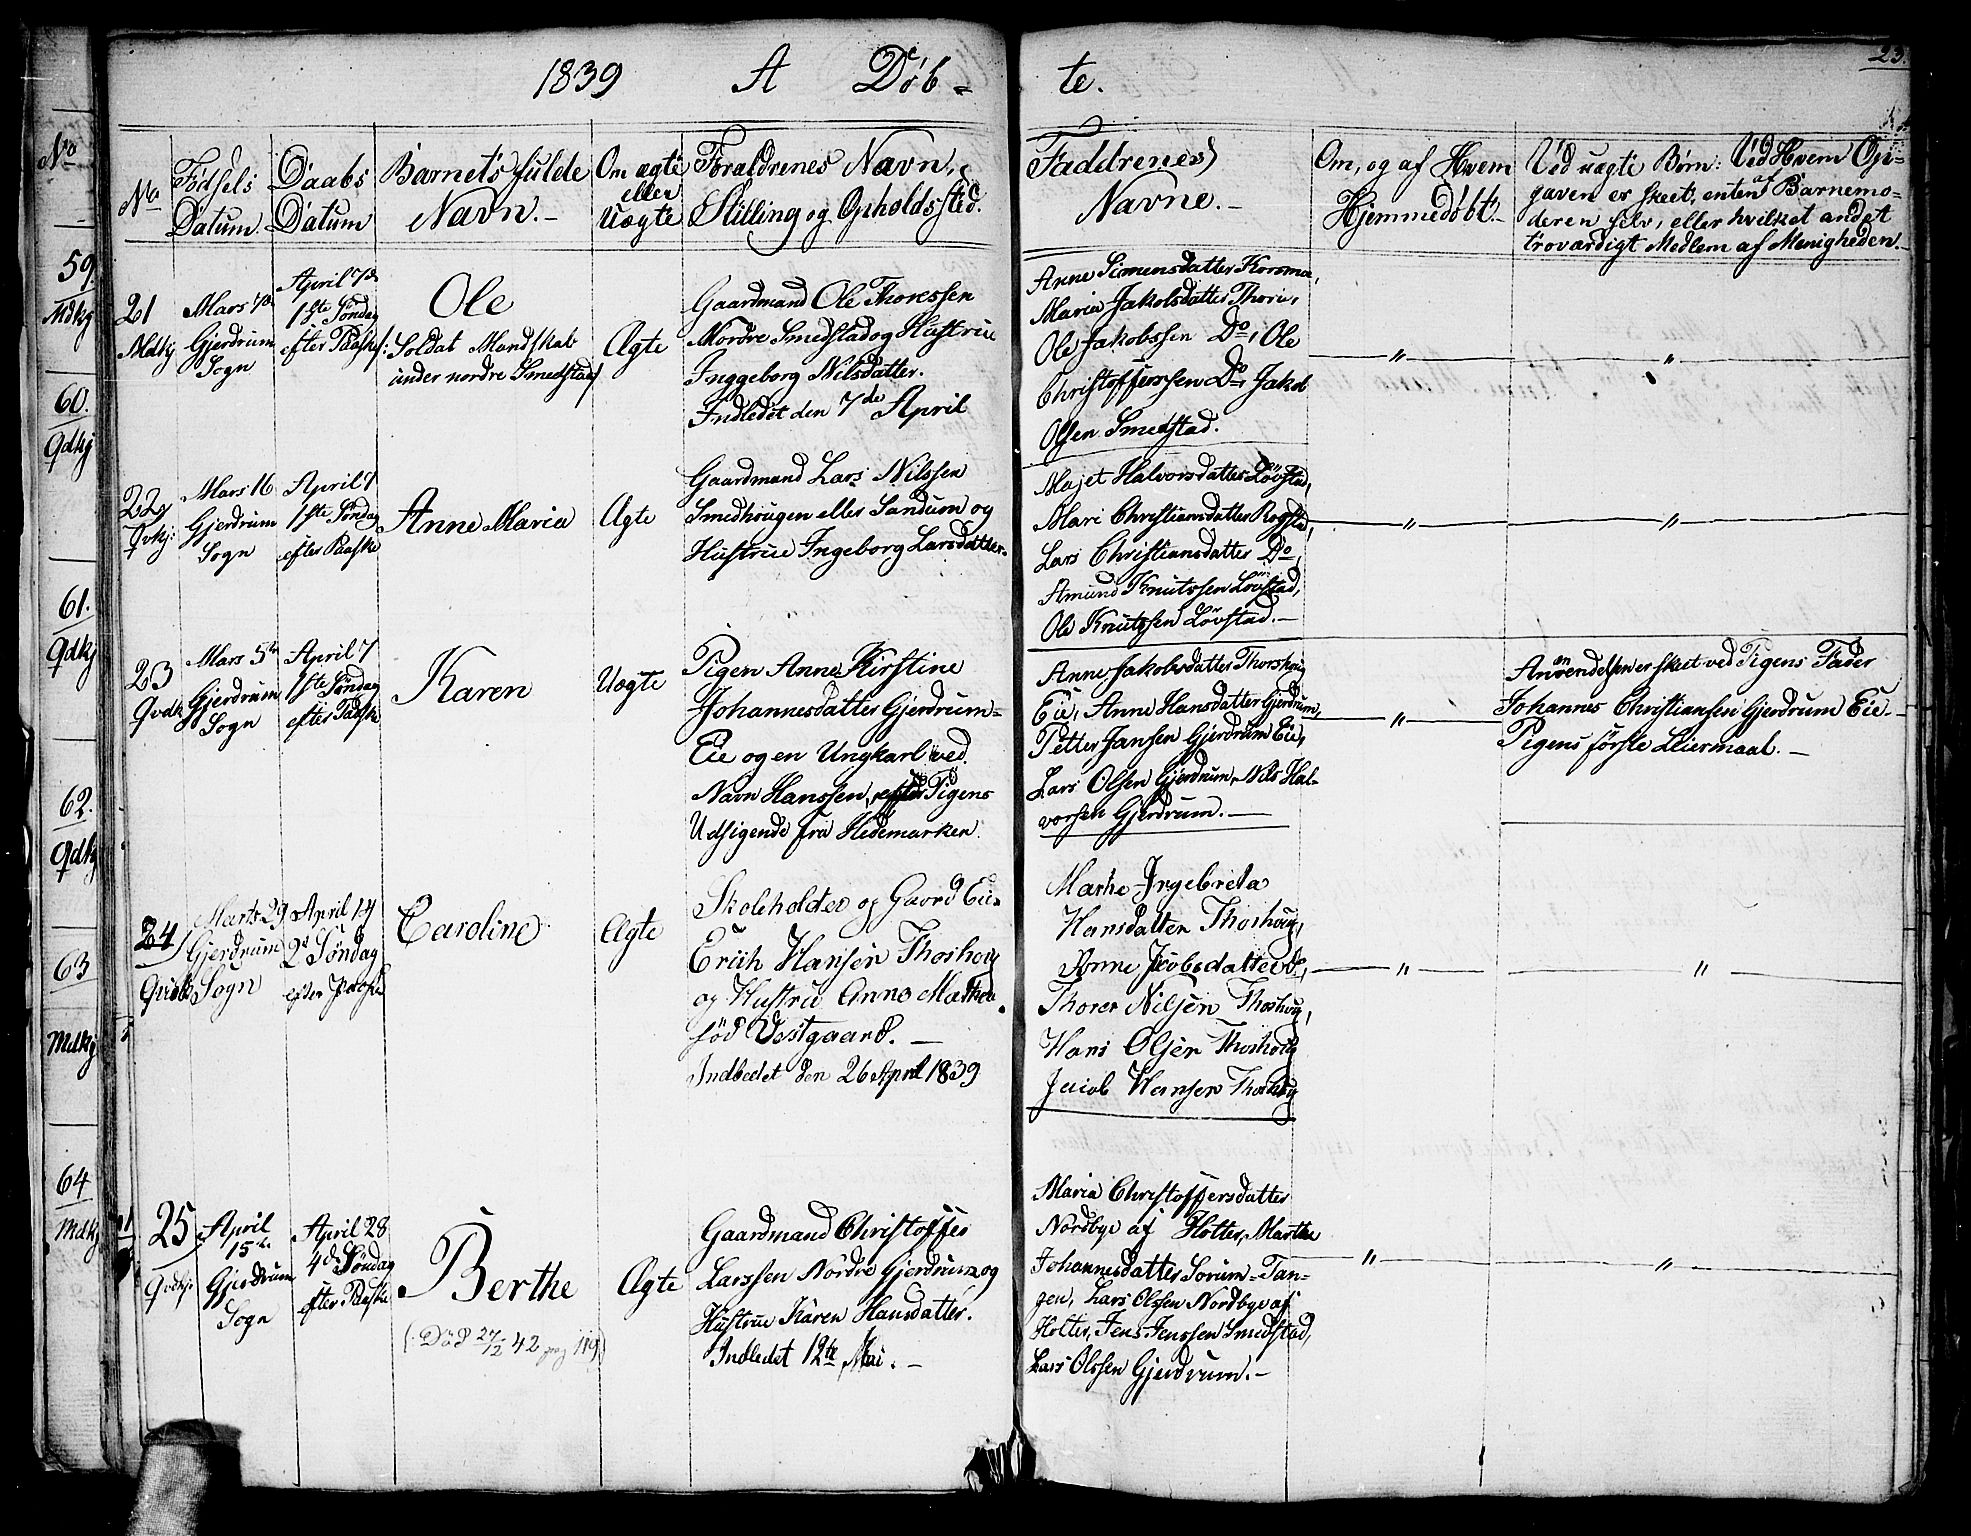 1839 A Døb-
te.
23.
No
59.
Mdkj
60.
Qdkj
61.
Qdkj
62.
Qdkj
63
Mdkj
64
Mdkj
No
Fødsels
Datum
Daabs
Datum
Barnets fulde
Navn.-
Om ægte
eller
Uægte
Foraldrenes Navn,
Stilling og Opholdssted.
Faddrenes
Navne.-
Om, og af Hvem
Hjemmedøbt.-
Ved uægte Børn: Ved Hvem Op-
gaven er skeet, enten af Barnemo-
deren selv, eller hvilket andet
troværdigt Medlem af Menigheden.-
21
Mdkj
Mars
Gjerdrum
Sogn
April 7de
1ste Søndag
efter Paaske
Ole
Soldat Mandskab
under nordre Smedstad
Ægte
Gaardmand Ole Thoressen
Nordre Smedstad og Hustrue
Inggeborg Nilsdatter.
Indledet den 7de April
Anne Simensdatter
Maria Jakobsdatter
Ole Jakobssen Do, Ole
Christofferssen Do, Jakob
Olsen Smedstad.
"
"
22
Qvkj:
Mars 16
Gjerdrum
Sogn
April 7
1ste Søndag
efter Paaske
Anne Maria
Ægte
Gaardmand Lars Nilssen
Smedhougen eller Sandum og
Hustrue Ingeborg Larsdatter.
Majet Halvorsdatter Løvstad,
Mari Christiansdatter Rogstad,
Lars Christiansdatter Do,
Amund Knutssen Løvstad,
Ole Knutssen Løvstad.-
"
"
23
Qvdk
Mars 5te
Gjerdrum
Sogn
April 7
1ste Søndag
efter Paaske
Karen
Uægte
Pigen Anne Kirstine
Johannesdatter Gjerdrum-
Eie og en Ungkarl ved
Navn Hanssen, efter Pigens
Udsigende fra Hedemarken.
Anne Jakobsdatter Thorshoug
Eie, Anne Hansdatter Gjerdrum,
Petter Jansen Gjerdrum Eie,
Lars Olsen Gjerdrum, Nils Hal-
vorsen Gjerdrum.-
"
Anvendelsen er skeet ved Pigens Fader
Johannes Christiansen Gjerdrum Eie-
Pigens første Leiermaal.-
24
Qvidk
Marts 29
Gjerdrum
Sogn
April 14
2d Søndag
efter Paaske
Caroline
Ægte
Skoleholder og Gaard Eier
Erich Hansen Thoshoug
og Hustru Anne Mathea
fød Vestgaard.-
Indledet den 26 April 1839
Marthe Ingebreta
Hansdatter Thoshoug,
Anne Jacobsdatter do,
Thorer Nilsen Thoshoug,
Hans Olsen Thoshoug
Jacob Hansen Thoshoug
"
"
25
Qvdkj.
April
15de
Gjerdrum
Sogn
April 28
4de Søndag
efter Paaske
Berthe
(Død 27/2 42 pag 119)
Ægte
Gaardmand Christoffer
Larssen Nordre Gjerdrum og
Hustrue Karen Hansdatter.
Indledet 12te Mai.-
Maria Christoffersdatter
Nordbye af Holter, Marthe
Johannesdatter Sorum-Tan-
gen, Lars Olssen Nordbye af
Holter, Jens Jenssen Smedstad,
Lars Olssen Gjerdrum.-
"
"